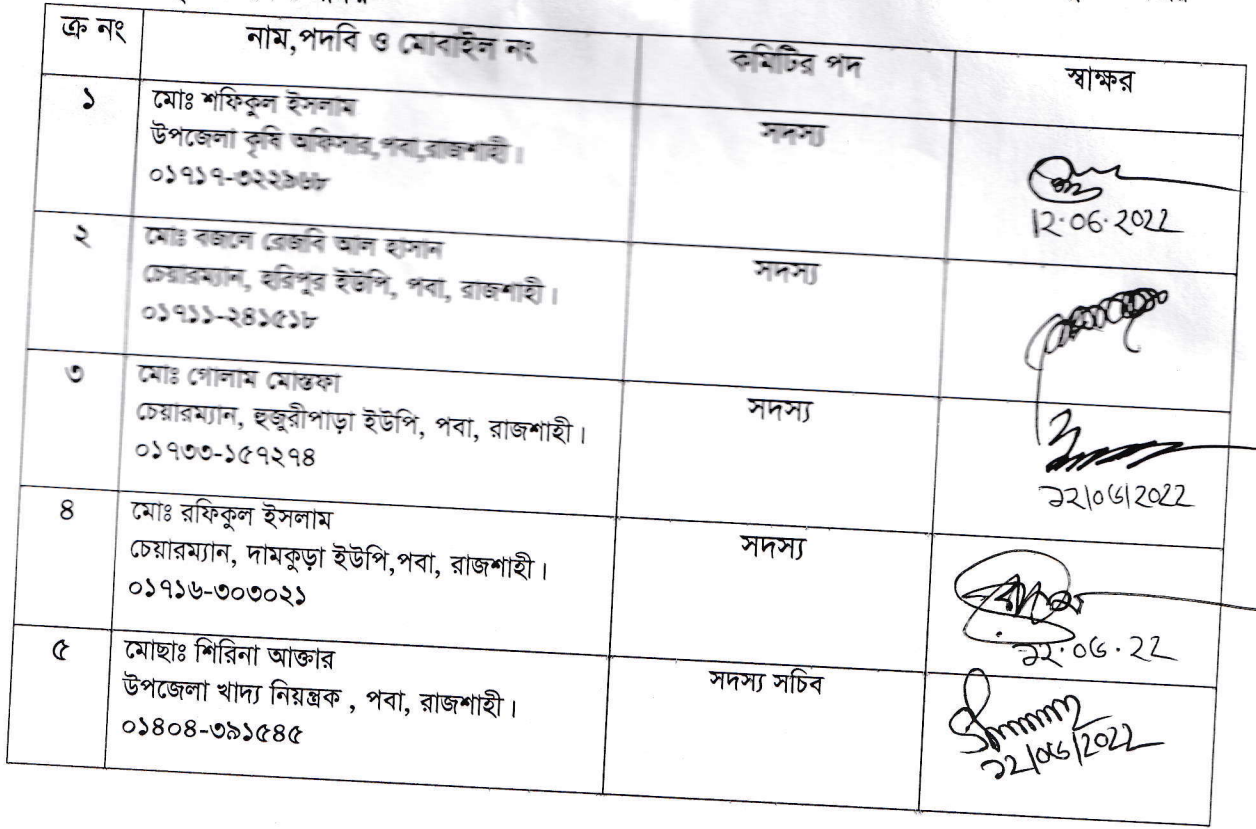 ক্র নং
নাম,পদবি ও মোবাইল নং
কমিটির পদ
স্বাক্ষর
১
মোঃ শফিকুল ইসলাম
উপজেলা কৃষি অফিসার,পবা,রাজশাহী।
০১৭১৭-৩২২৯৬৮
সদস্য
12.06.2022
২
মোঃ বজলে রেজবি আল হাসান
চেয়ারম্যান, হরিপুর ইউপি, পবা, রাজশাহী।
০১৭১১-২৪১৫১৮
সদস্য
৩
মোঃ গোলাম মোস্তফা
চেয়ারম্যান, হুজুরীপাড়া ইউপি, পবা, রাজশাহী।
০১৭৩৩-১৫৭২৭৪
সদস্য
১২/০৬/2022
৪
মোঃ রফিকুল ইসলাম
চেয়ারম্যান, দামকুড়া ইউপি,পবা, রাজশাহী।
০১৭১৬-৩০৩০২১
সদস্য
১২.০৬.২২
৫
মোছাঃ শিরিনা আক্তার
উপজেলা খাদ্য নিয়ন্ত্রক , পবা, রাজশাহী।
০১৪০৪-৩৯১৫৪৫
সদস্য সচিব
১২/০৬/2022